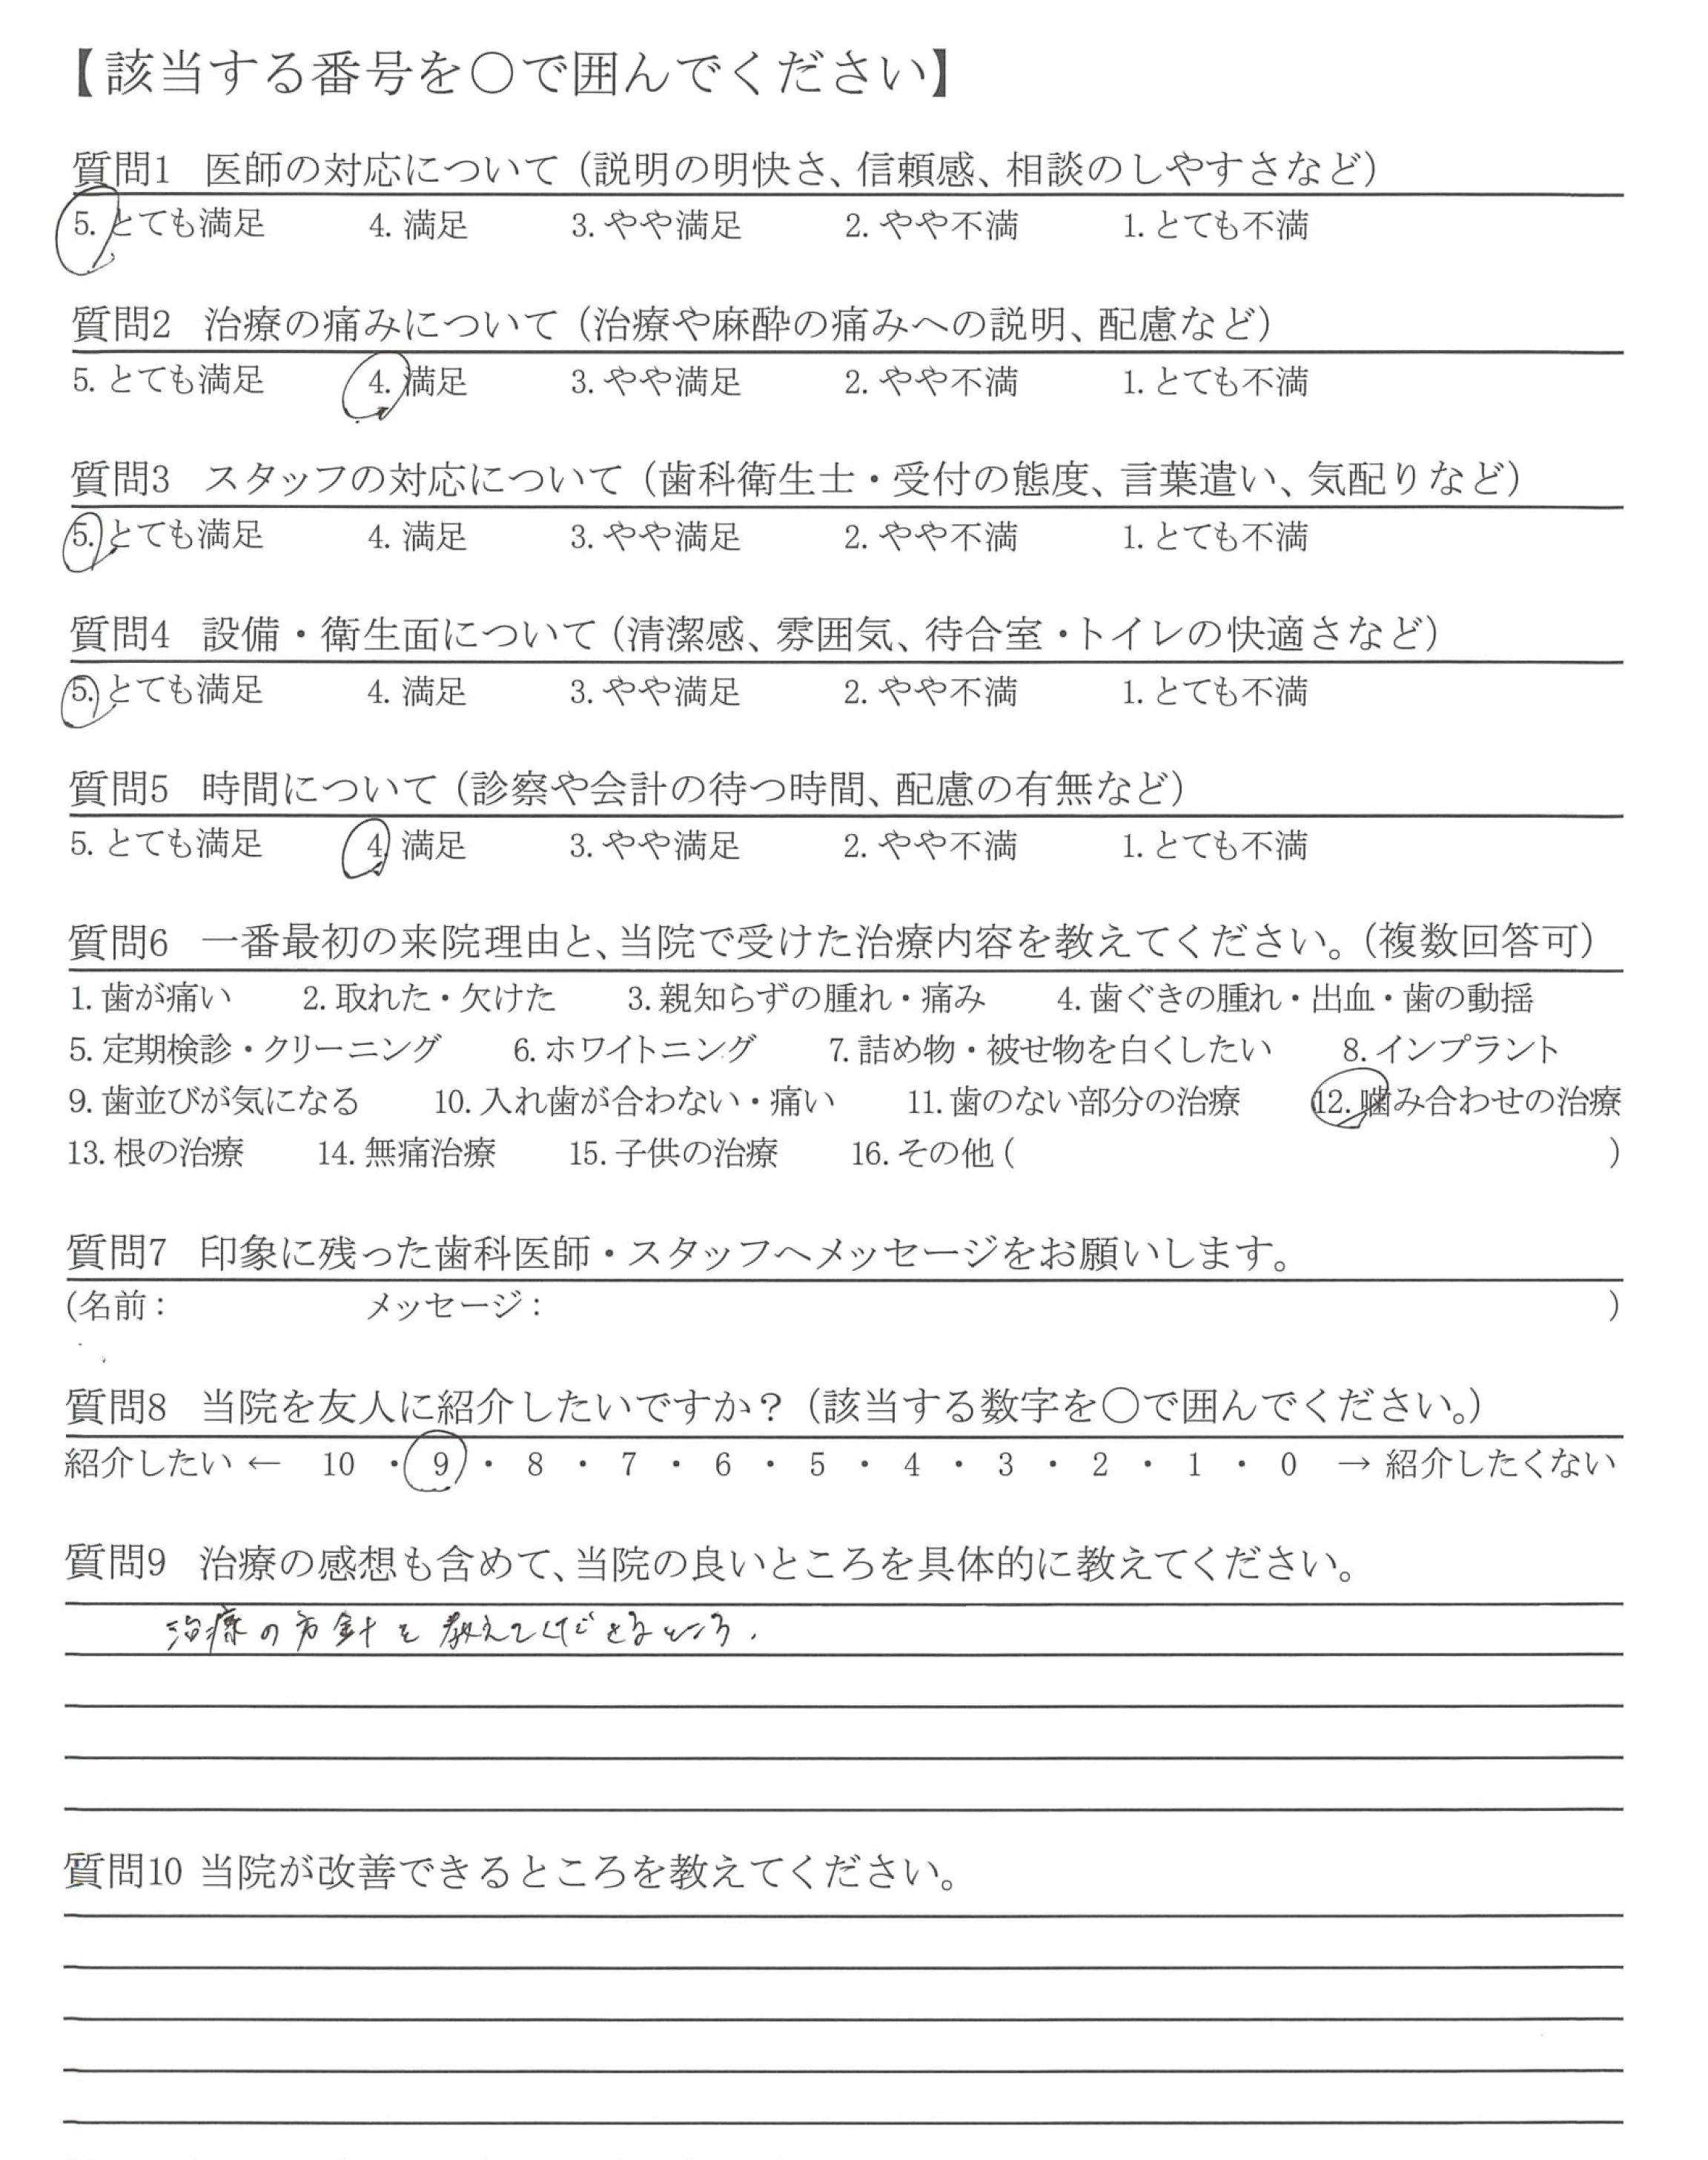 【該当する番号を○で囲んでください】
質問1 医師の対応について（説明の明快さ、信頼感、相談のしやすさなど）
5. とても満足 4. 満足 3. やや満足 2. やや不満 1. とても不満
質問2 治療の痛みについて（治療や麻酔の痛みへの説明、配慮など）
5. とても満足 4. 満足 3. やや満足 2. やや不満 1. とても不満
質問3 スタッフの対応について（歯科衛生士・受付の態度、言葉遣い、気配りなど）
5. とても満足 4. 満足 3. やや満足 2. やや不満 1. とても不満
質問4 設備・衛生面について（清潔感、雰囲気、待合室・トイレの快適さなど）
5. とても満足 4. 満足 3. やや満足 2. やや不満 1. とても不満
質問5 時間について（診察や会計の待つ時間、配慮の有無など）
5. とても満足 4. 満足 3. やや満足 2. やや不満 1. とても不満
質問6 一番最初の来院理由と、当院で受けた治療内容を教えてください。（複数回答可）
1. 歯が痛い 2. 取れた・欠けた 3. 親知らずの腫れ・痛み 4. 歯ぐきの腫れ・出血・歯の動揺
5. 定期検診・クリーニング 6. ホワイトニング 7. 詰め物・被せ物を白くしたい 8. インプラント
9. 歯並びが気になる 10. 入れ歯が合わない・痛い 11. 歯のない部分の治療 12. 噛み合わせの治療
13. 根の治療 14. 無痛治療 15. 子供の治療 16. その他（ ）
質問7 印象に残った歯科医師・スタッフへメッセージをお願いします。
（名前： メッセージ： ）
質問8 当院を友人に紹介したいですか？（該当する数字を○で囲んでください。）
紹介したい ← 10 ・ 9 ・ 8 ・ 7 ・ 6 ・ 5 ・ 4 ・ 3 ・ 2 ・ 1 ・ 0 → 紹介したくない
質問9 治療の感想も含めて、当院の良いところを具体的に教えてください。
治療の方針を教えてくださるところ.
質問10 当院が改善できるところを教えてください。